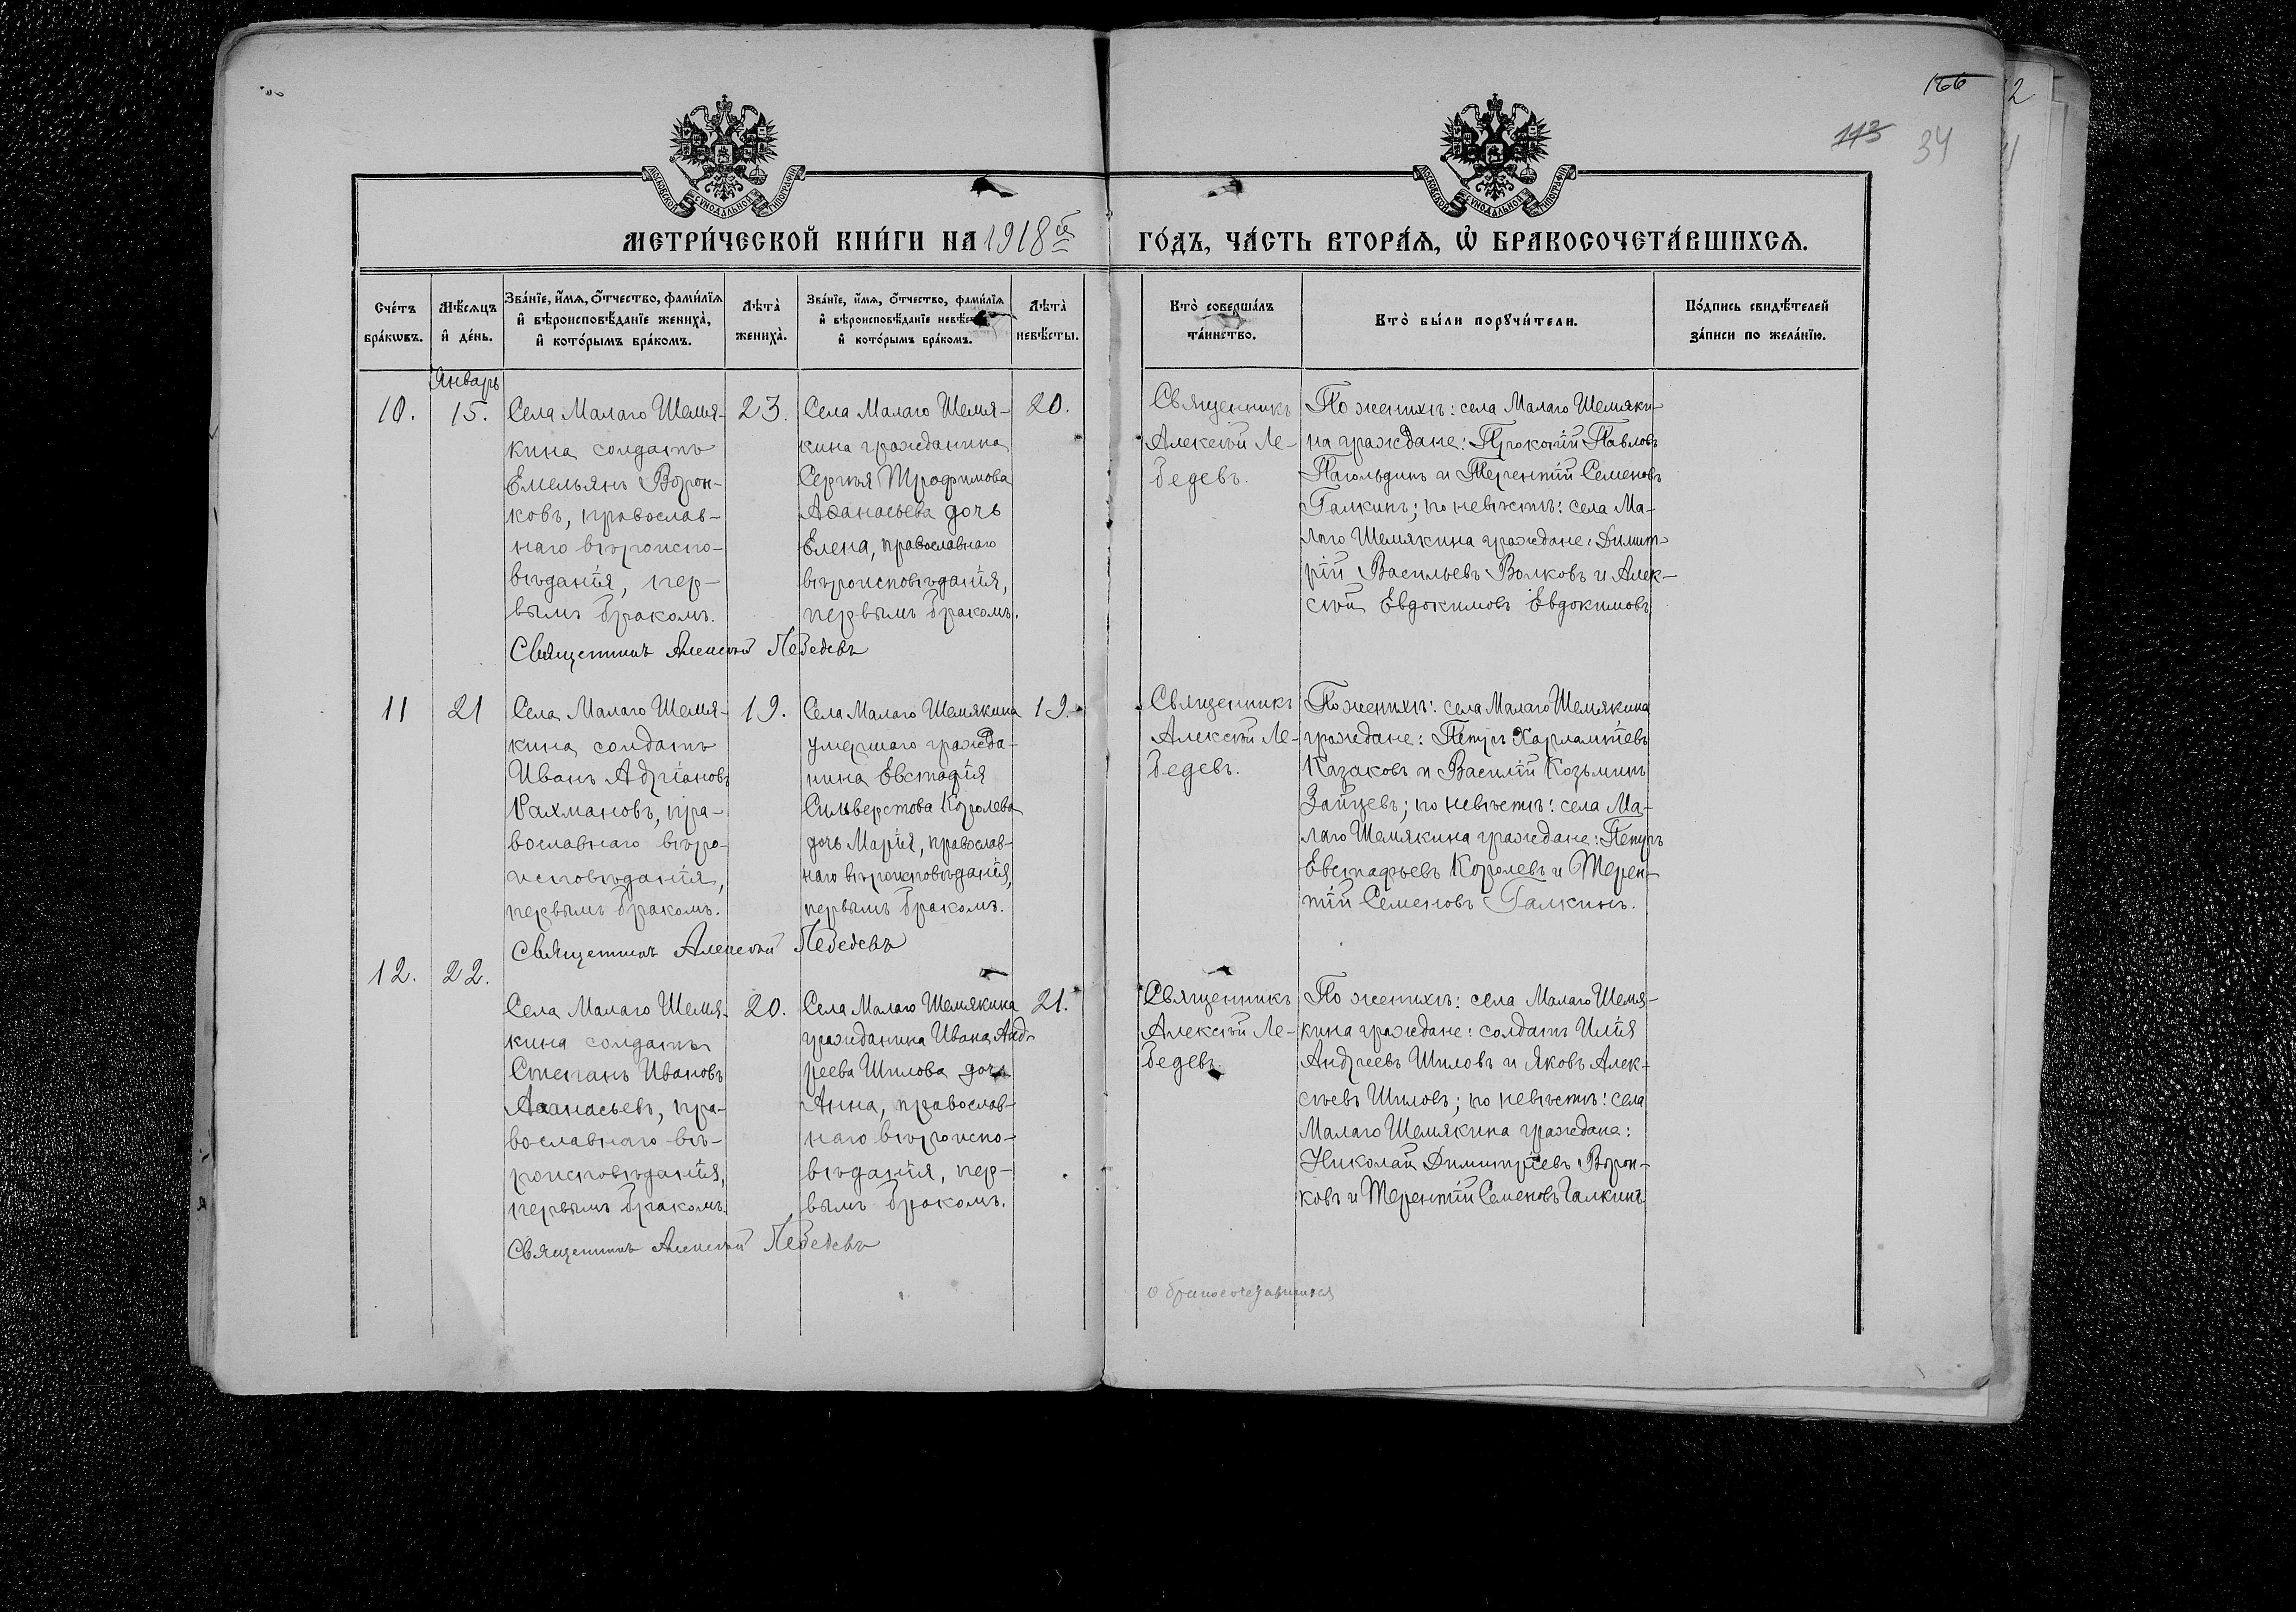 166
113 34
2
МОСКОВСКОЙ СѴНОДАЛЬНОЙ ТИПОГРАФІИ
МОСКОВСКОЙ СѴНОДАЛЬНОЙ ТИПОГРАФІИ
МЕТРИ́ЧЕСКОЙ КНИ́ГИ НА 1918 й ГО́ДЪ, ЧА́СТЬ ВТОРА́Ѧ, Ѽ БРАКОСОЧЕТА́ВШИХСѦ.
Сче́тъ
бра́кѡвъ.
Мѣ́сѧцъ
и҆ де́нь.
Зва́нїе, и҆́мѧ, ѻ҆́тчество, фами́лїѧ
и҆ вѣроисповѣ́данїе жениха̀,
и҆ кото́рымъ бра́комъ.
Лѣта̀
жениха̀.
Зва́нїе, и҆́мѧ, ѻ҆́тчество, фами́лїѧ
и҆ вѣроисповѣ́данїе невѣ́сты
и҆ кото́рымъ бра́комъ.
Лѣта̀
невѣ́сты.
Кто̀ соверша́лъ
та́инство.
Кто̀ бы́ли порꙋчи́тели.
По́дпись свидѣ́телей
за́писи по жела́нїю.
Январь
10.
15.
Села Малаго Шемя-
кина солдатъ
Емельянъ Ворон-
ковъ, православ-
наго вѣроиспо-
вѣданія, пер-
вымъ бракомъ.
23.
Села Малаго Шемя-
кина гражданина
Сергѣя Трофимова
Аѳанасьева дочь
Елена, православнаго
вѣроисповѣданія,
первымъ бракомъ.
20.
Священникъ
Алексѣй Ле-
бедевъ.
По женихѣ: села Малаго Шемяки-
на граждане: Прокопій Павловъ
Пагольдинъ и Терентій Семеновъ
Галкинъ; по невѣстѣ: села Ма-
лаго Шемякина граждане: Димит-
рій Васильевъ Волковъ и Алек-
сѣй Евдокимовъ Евдокимовъ
Священникъ Алексѣй Лебедевъ
11
21
Села Малаго Шемя-
кина солдатъ
Иванъ Адріановъ
Рахмановъ, пра-
вославнаго вѣро-
исповѣданія,
первымъ бракомъ.
19.
Села Малаго Шемякина
умершаго гражда-
нина Евстафія
Сильверстова Королева
дочь Марія, православ-
наго вѣроисповѣданія,
первымъ бракомъ.
19.
Священникъ
Алексѣй Ле-
бедевъ.
По женихѣ: села Малаго Шемякина
граждане: Петръ Харлампіевъ
Казаковъ и Василій Козьминъ
Зайцевъ; по невѣстѣ: села Ма-
лаго Шемякина граждане: Петръ
Евстафьевъ Королевъ и Терен-
тій Семеновъ Галкинъ.
Священникъ Алексѣй Лебедевъ
12.
22.
Села Малаго Шемя-
кина солдатъ
Степанъ Ивановъ
Аѳанасьевъ, пра-
вославнаго вѣ-
роисповѣданія,
первымъ бракомъ.
20.
Села Малаго Шемякина
гражданина Ивана Анд-
реева Шилова дочь
Анна, православ-
наго вѣроиспо-
вѣданія, пер-
вымъ бракомъ.
21.
Священникъ
Алексѣй Ле-
бедевъ
По женихѣ: села Малаго Шемя-
кина граждане: солдатъ Илія
Андреевъ Шиловъ и Яковъ Алек-
сѣевъ Шиловъ; по невѣстѣ: села
Малаго Шемякина граждане:
Николай Димитріевъ Ворон-
ковъ и Терентій Семеновъ Галкинъ
Священникъ Алексѣй Лебедевъ
о бракосочетавшихся